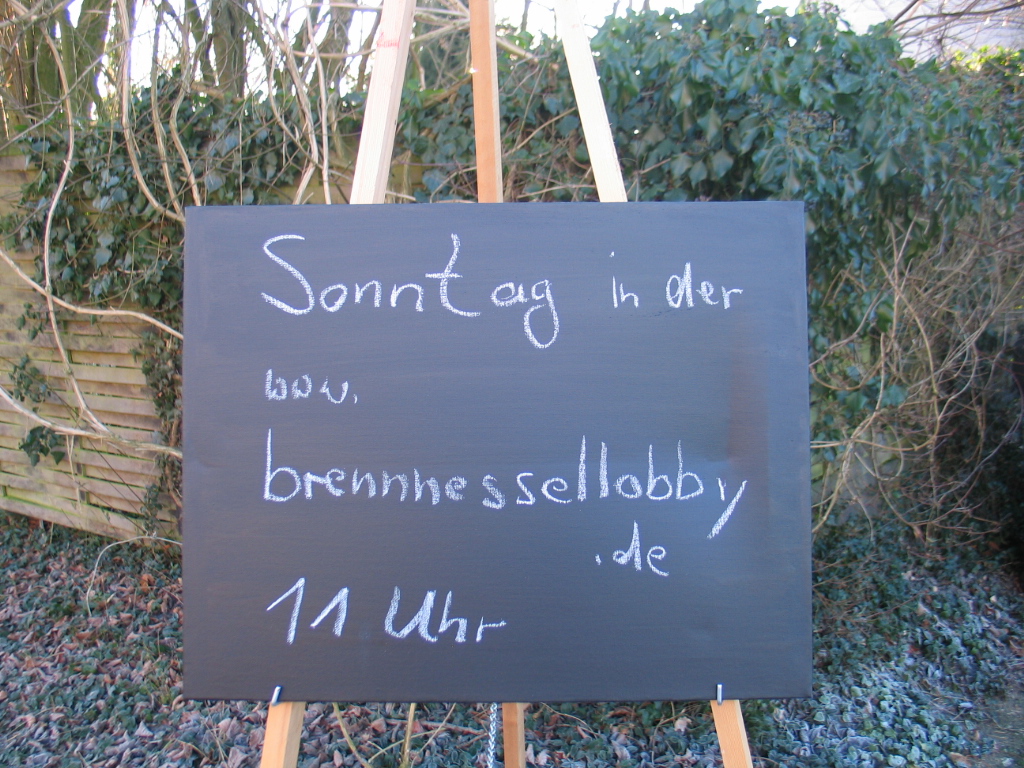 Sonntag in der
www.
brennnessellobby
.de
11 Uhr